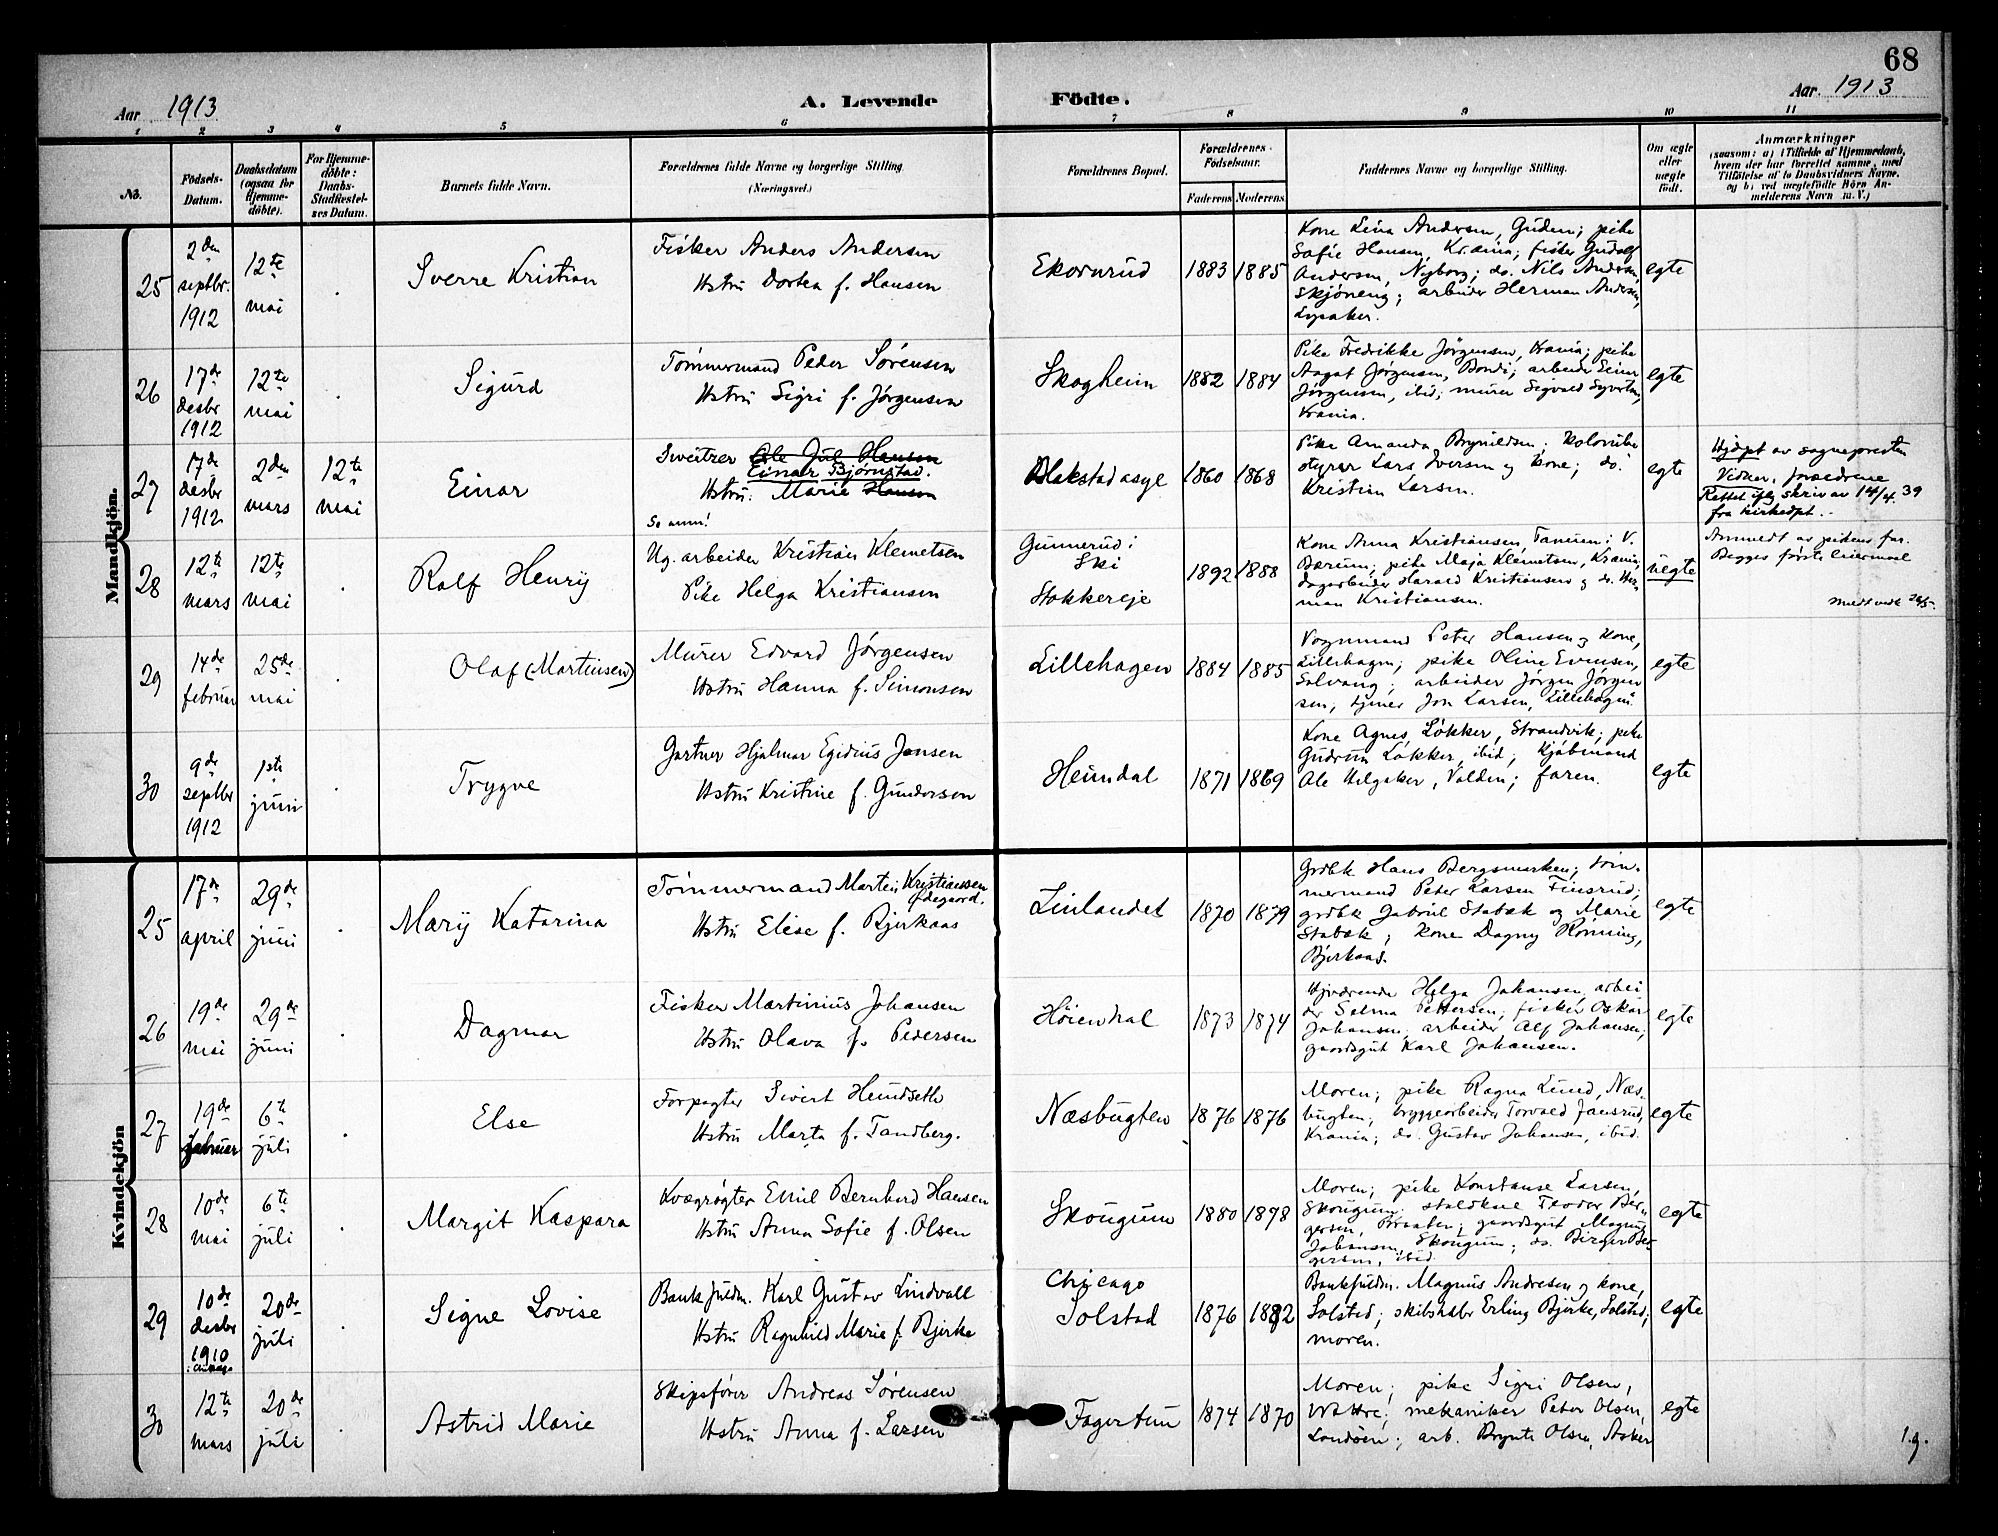 68
Aar 1913
A. Levende
Födte.
Aar. 1913
1 2 3 4 5 6 7 8 9 10 11
No.
Födsels-Datum.
Daabsdatum (ogsaa for Hjemme-döbte).
For Hjemme-döbte: Daabs-Stadfæstel-ses Datum.
Barnets fulde Navn.
Forældrenes fulde Navne og borgerlige Stilling (Næringsvei.)
Forældrenes Bopæl.
Forældrenes Födselsaar.
Faderens
Moderens
Faddernes Navne og borgerlige Stilling.
Om ægte eller uægte født.
Anmærkninger
(saasom: a) i Tilfælde af Hjemmedaab,
hvem der har forrettet samme, med
Tilføielse af to Daabsvidners Navne,
og b) ved uægtefödte Börn An-
melderens Navn m. V.)
Mandkjön.
25
2den septbr. 1912
12te mai
Sverre Kristian
Fisker Anders Andersen
Hstru Dortea f. Hansen
Ekornrud
1883
1885
Kone Lina Andersen, Guden; pike
Sofie Hansen, Krania; fisker Gudolf
Andersen, Nyborg; do. Nils Andersen,
Skjöneng; arbeider Herman Andersen,
Lysaker.
egte
26
17de desbr 1912
12te mai
Sigurd
Tömmermand Peder Sörensen
Hstru Sigri f. Jörgensen
Skogheim
1882
1884
Pike Fredrikke Jörgensen, Krania; pike
Aagot Jörgensen, Bondi; arbeider Einar
Jörgensen, ibid; murer Sigvald Syvertsen,
Krania.
egte
27
17de desbr 1912
2den mars
12te mai
Einar
Sveitzer Ole Jul Hansen
Einar Björnstad.
Hstru: Marie Hansen
Se anm!
Blakstad asyl
1860
1868
Pike Amanda Brynildsen; Kolonibe
styrer Lars Iversen og kone; do.
Kristian Larsen.
egte
Hjdpt av sognepresten
Vidner: forældrene
Rettet iflg skriv av 14/4. 39
fra kirkedpt.
28
12te mars
12te mai
Rolf Henry
Ug. arbeider Kristian Klemetsen
Pike Helga Kristiansen
Gunnerud i Ski
Stokkereie
1892
1888
Kone Anna Kristiansen Tanum i V.
Bærum; pike Maja Klemetsen, Krania;
dagarbeider Harald Kristiansen og do. Her-
man Kristiansen.
uegte
Anmeldt av pikens far.
Begges første leiermaal
29
14de februar
25de mai
Olaf (Martinsen)
Murer Edvard Jörgensen
Hstru Hanna f. Simonsen
Lillehagen
1884
1885
Vognmand Peter Hansen og kone,
Lillehagen; pike Oline Evensen,
Solvang; arbeider Jörgen Jörgen
sen, tjener Jon Larsen, Lillehagen.
egte
30
9de septbr 1912
1ste juni
Trygve
Gartner Hjalmar Egidius Jensen
Hstru Kristine f. Gundersen
Heimdal
1871
1869
Kone Agnes Lökker, Strandvik; pike
Gudrun Lökker, ibid; kjöbmand
Ole Helgeker, Valden; faren.
egte
Kvindekjön
25
17de april
29de juni
Mary Katarina
Tömmermand Martin Kristianssen
Ödegaard.
Hstru Elise f. Bjerkaas
Linlandet
1870
1879
Grdbk Hans Bergsmarken; töm-
mermand Peter Larsen Finsrud;
grdbk Gabriel Stabæk og Marie
Stabæk; kone Dagny Rönning,
Bjerkaas.
egte
26
19de mai
29de juni
Dagmar
Fisker Martinius Johansen
Hstru Olava f. Pedersen
Höienhal
1873
1874
Hjværende Helga Johansen, arbei
der Selma Pettersen; fisker Oskar
Johansen; arbeider Alf Johansen;
gaardsgut Karl Johansen.
egte
27
19de februar
6te juli
Else
Forpagter Sivert Hemdseth
Hstru Marta f. Tandberg.
Næsbugten
1876
1876
Moren; pike Ragna Lund, Næs-
bugten; bryggearbeider Torvald Jansrud,
Krania; do. Gustav Johansen, ibid.
egte
28
10de mai
6te juli
Margit Kaspara
Kvægrögter Emil Bernhard Hansen
Hstru Anna Sofie f. Olsen
Skougum
1880
1878
Moren; pike Konstanse Larsen,
Skougum; staldkar Teodor Bir-
gersen, Braaten; gaardsgut Magnus
Johansen, Skougum; do. Birger Bir-
gersen, ibid.
egte
29
10de desbr 1910
i Chikago
20de juli
Signe Lovise
Bankfuldm. Karl Gustav Lindvall
Hstru Ragnhild Marie f. Bjerke
Chicago
Solstad
1876
1882
Bankfuldm. Magnus Andresen og kone,
Solstad; skibsmægler Erling Bjerke, Solstad;
moren.
egte
30
12te mars
20de juli
Astrid Marie
Skipsförer Andreas Sörensen
Hstru Anna f. Larsen
Fagertun
1874
1870
Moren; pike Sigri Olsen,
Vettre; mekaniker Peter Olsen,
Landöen; arb. Brynte Olsen, Asker
egte
1.g.